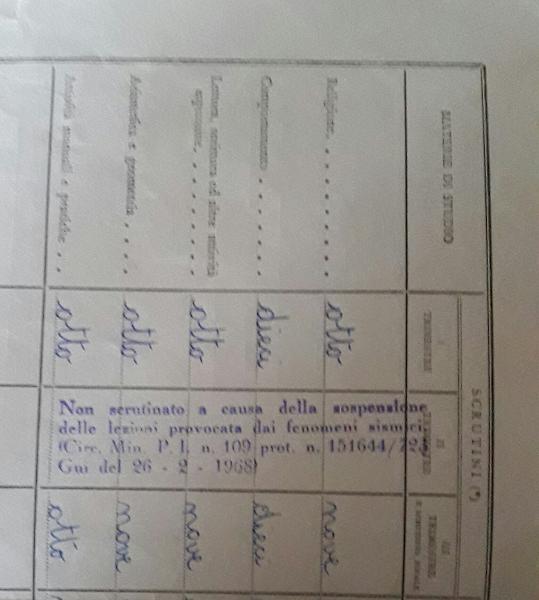 MATERIE DI STUDIO
SCRUTINI (*)
I
TRIMESTRE
II
III
TRIMESTRE
Religione. . . . . . . . . . otto nove
Comportamento . . . . . . . dieci dieci
Lettura, scrittura ed altre attività
espressive. . . . . . . . . otto nove
Aritmetica e geometria . . . . otto nove
Attività manuali e pratiche . . otto otto
Non scrutinato a causa della sospensione
delle lezioni provocata dai fenomeni sismici.
(Circ. Min. P. I. n. 109 prot. n. 151644/72/
Gui del 26 - 2 - 1968)